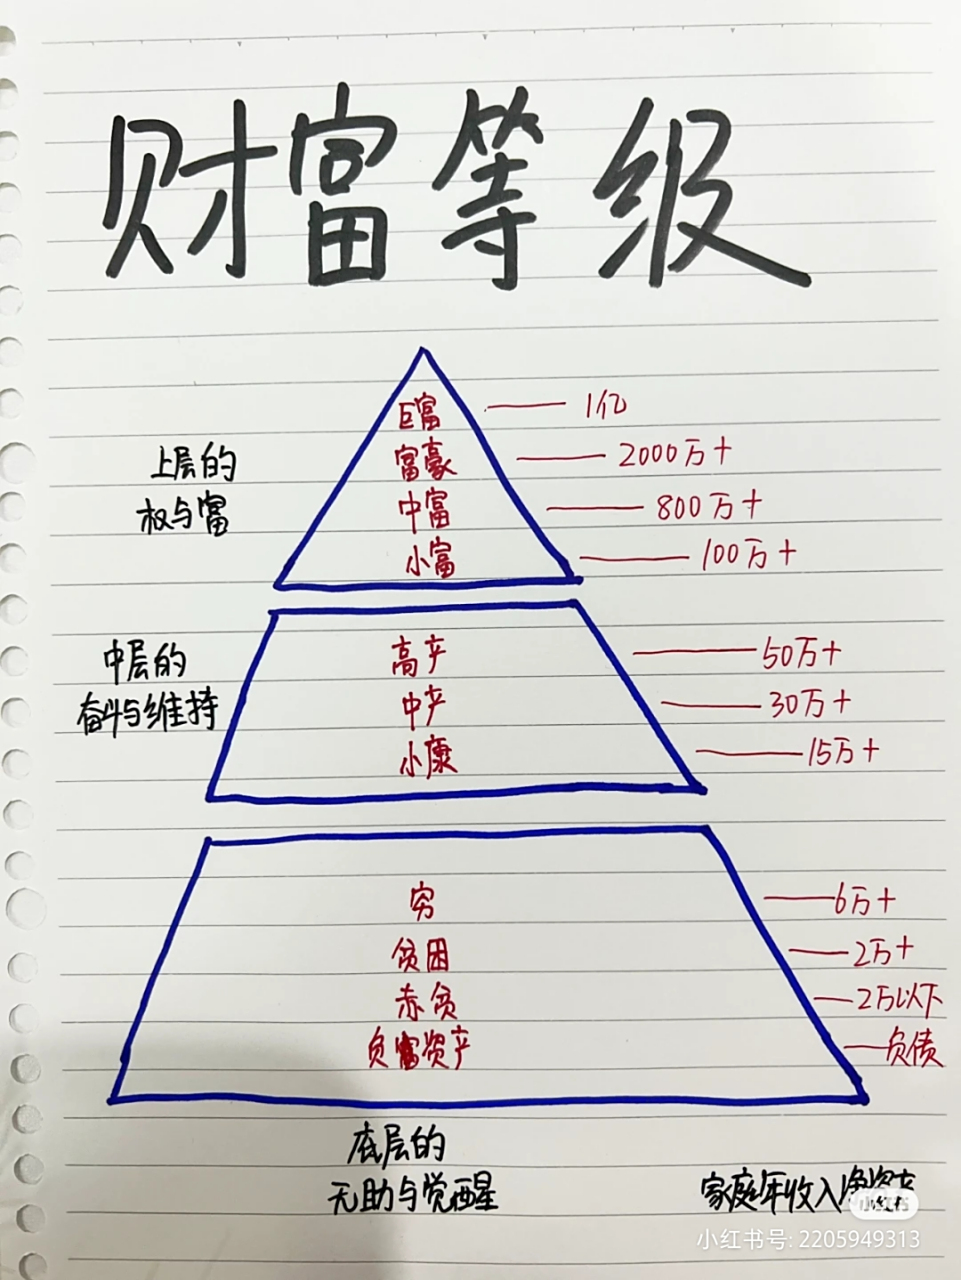 财富等级
巨富 1亿
富豪 2000万+
中富 800万+
小富 100万+
上层的
权与富
高产 50万+
中产 30万+
小康 15万+
中层的
奋斗与维持
穷 6万+
贫困 2万+
赤贫 2万以下
负资产 负债
底层的
无助与觉醒
家庭年收入净资产
小红书
小红书号: 2205949313